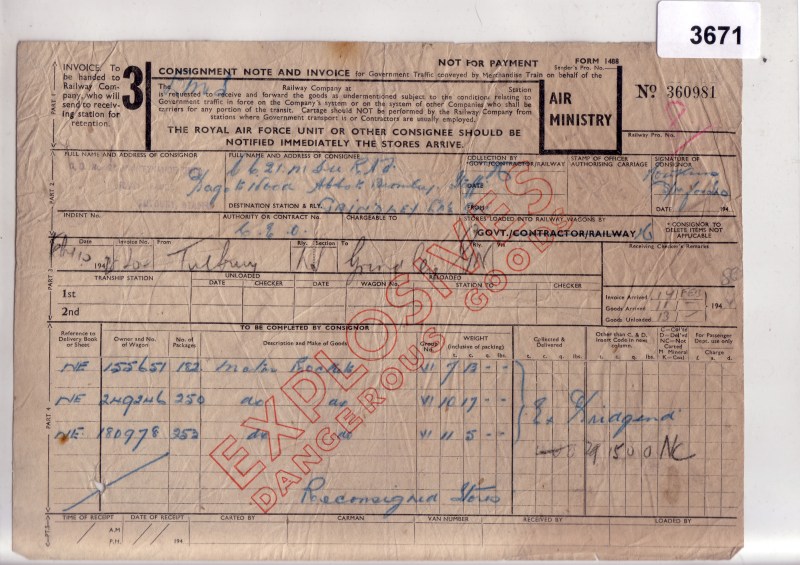 3671
NOT FOR PAYMENT
FORM 1488
Sender's Pro. No.
INVOICE. To be handed to Railway Company, who will send to receiving station for retention.
3
CONSIGNMENT NOTE AND INVOICE for Government Traffic conveyed by Merchandise Train on behalf of the
The L.M.S Railway Company at Station
is requested to receive and forward the goods as undermentioned subject to the conditions relating to
Government traffic in force on the Company's system or on the system of other Companies who shall be
carriers for any portion of the transit. Cartage should NOT be performed by the Railway Company from
stations where Government transport is or Contractors are usually employed.
THE ROYAL AIR FORCE UNIT OR OTHER CONSIGNEE SHOULD BE
NOTIFIED IMMEDIATELY THE STORES ARRIVE.
AIR MINISTRY
No 360981
Railway Pro. No.
PART 1
PART 2
PART 3
PART 4
PT. 5
FULL NAME AND ADDRESS OF CONSIGNOR
FULL NAME AND ADDRESS OF CONSIGNEE
COLLECTION BY GOVT/CONTRACTOR/RAILWAY
STAMP OF OFFICER AUTHORISING CARRIAGE
SIGNATURE OF CONSIGNOR
DATE
FROM
DATE 194
DESTINATION STATION & RLY.
INDENT No.
AUTHORITY OR CONTRACT No.
CHARGEABLE TO
STORES LOADED INTO RAILWAY WAGONS BY
GOVT./CONTRACTOR/RAILWAY
* CONSIGNOR TO DELETE ITEMS NOT APPLICABLE
Date Invoice No. From Rly. Section To Rly. via
194 Tutbury
Receiving Checker's Remarks
TRANSHIP STATION UNLOADED DATE CHECKER DATE WAGON No. RELOADED STATION TO CHECKER
1st
2nd
Invoice Arrived
Goods Arrived 194
Goods Unloaded
EXPLOSIVES
DANGEROUS GOODS
TO BE COMPLETED BY CONSIGNOR
Reference to Delivery Book or Sheet
Owner and No. of Wagon
No. of Packages
Description and Make of Goods
Group No.
WEIGHT (inclusive of packing)
Collected & Delivered
Other than C. & D. Insert Code in next column.
C—Col'd D—Del'd NC—Not Carted M Mineral K—Coal
For Passenger Dept. use only
Charge £ s. d.
NE 155651 182 VI 7 13 - -
NE 249246 250 do do VI 10 17 - -
NE 180978 253 do do VI 11 5 - -
Ex
NC
Reconsigned Stores
TIME OF RECEIPT DATE OF RECEIPT CARTED BY CARMAN VAN NUMBER RECEIVED BY LOADED BY
A.M
P.M. 194